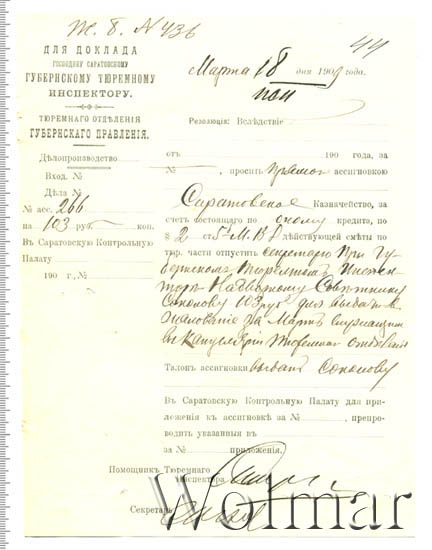 Ж. б. № 436
44
ДЛЯ ДОКЛАДА
ГОСПОДИНУ САРАТОВСКОМУ
ГУБЕРНСКОМУ ТЮРЕМНОМУ
ИНСПЕКТОРУ.
ТЮРЕМНАГО ОТДѢЛЕНІЯ
ГУБЕРНСКАГО ПРАВЛЕНІЯ.
Дѣлопроизводство
Вход. №
Дѣла №
№ асс. 266
на 103 руб. коп.
Въ Саратовскую Контрольную
Палату
190 г., №
Марта 18 дня 1909 года.
Резолюція: Вслѣдствіе
отъ 190 года, за
№ , проситъ прямою ассигновкою
Саратовское Казначейство, за
счетъ состоящаго по кредита, по
§ 2 ст. 5 М. В. Д. дѣйствующей смѣты по
тюр. части отпустить секретарю при Гу-
бернскомъ Тюремномъ Инспек-
торѣ Надворному Совѣтнику
Соколову 103 руб. для выдачи
жалованія за Мартъ служащимъ
въ канцеляріи Тюремнаго отдѣленія
Талонъ ассигновки выдать Соколову
Въ Саратовскую Контрольную Палату для при-
ложенія къ ассигновкѣ за № , препро-
водить указанныя въ
за № приложенія.
Помощникъ Тюремнаго
Инспектора
Секретарь
Wolmar